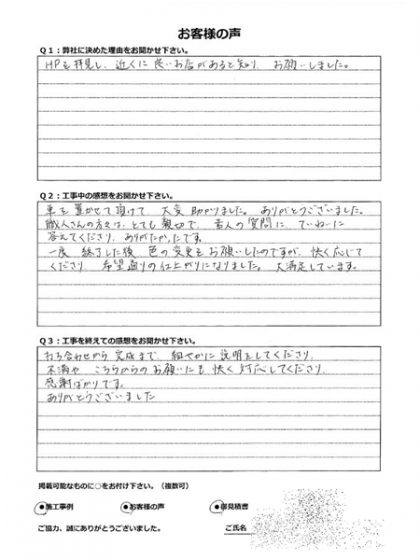 お客様の声
Q1：弊社に決めた理由をお聞かせ下さい。
HPを拝見し、近くに良いお店があると知り、お願いしました。
Q2：工事中の感想をお聞かせ下さい。
車を置かせて頂けて、大変助かりました。ありがとうございました。
職人さんの方々は、とても親切で、素人の質問に、ていねいに
答えてくださり、ありがたかったです。
一度 終了した後 色の変更をお願いしたのですが、快く応じて
くださり、希望通りの仕上がりになりました。大満足しています。
Q3：工事を終えての感想をお聞かせ下さい。
打ち合わせから完成まで、細やかに説明をしてくださり、
不満や こちらからのお願いにも 快く対応してくださり、
感謝ばかりです。
ありがとうございました
掲載可能なものに○をお付け下さい。（複数可）
●施工事例 ●お客様の声 ●御見積書
ご協力、誠にありがとうございました。 ご氏名